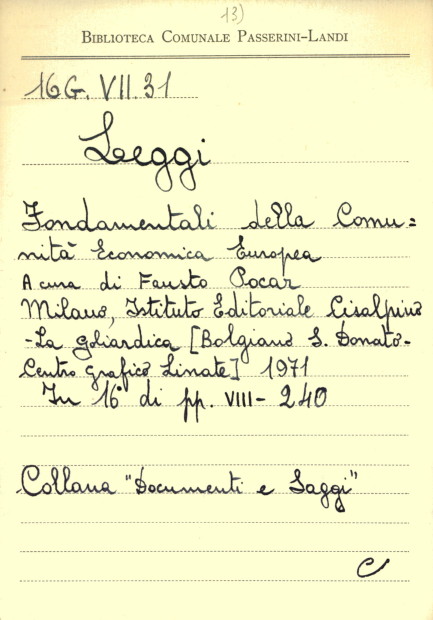 13)
BIBLIOTECA COMUNALE PASSERINI-LANDI
16G. VII. 31
Leggi
Fondamentali della Comu=
nità Economica Europea
A cura di Fausto Pocar
Milano, Istituto Editoriale Cisalpino
-La Goliardica [Bolgiano S. Donato-
Centro Grafico Linate] 1971
In 16° di pp. VIII- 240
Collana "Documenti e Saggi"
C